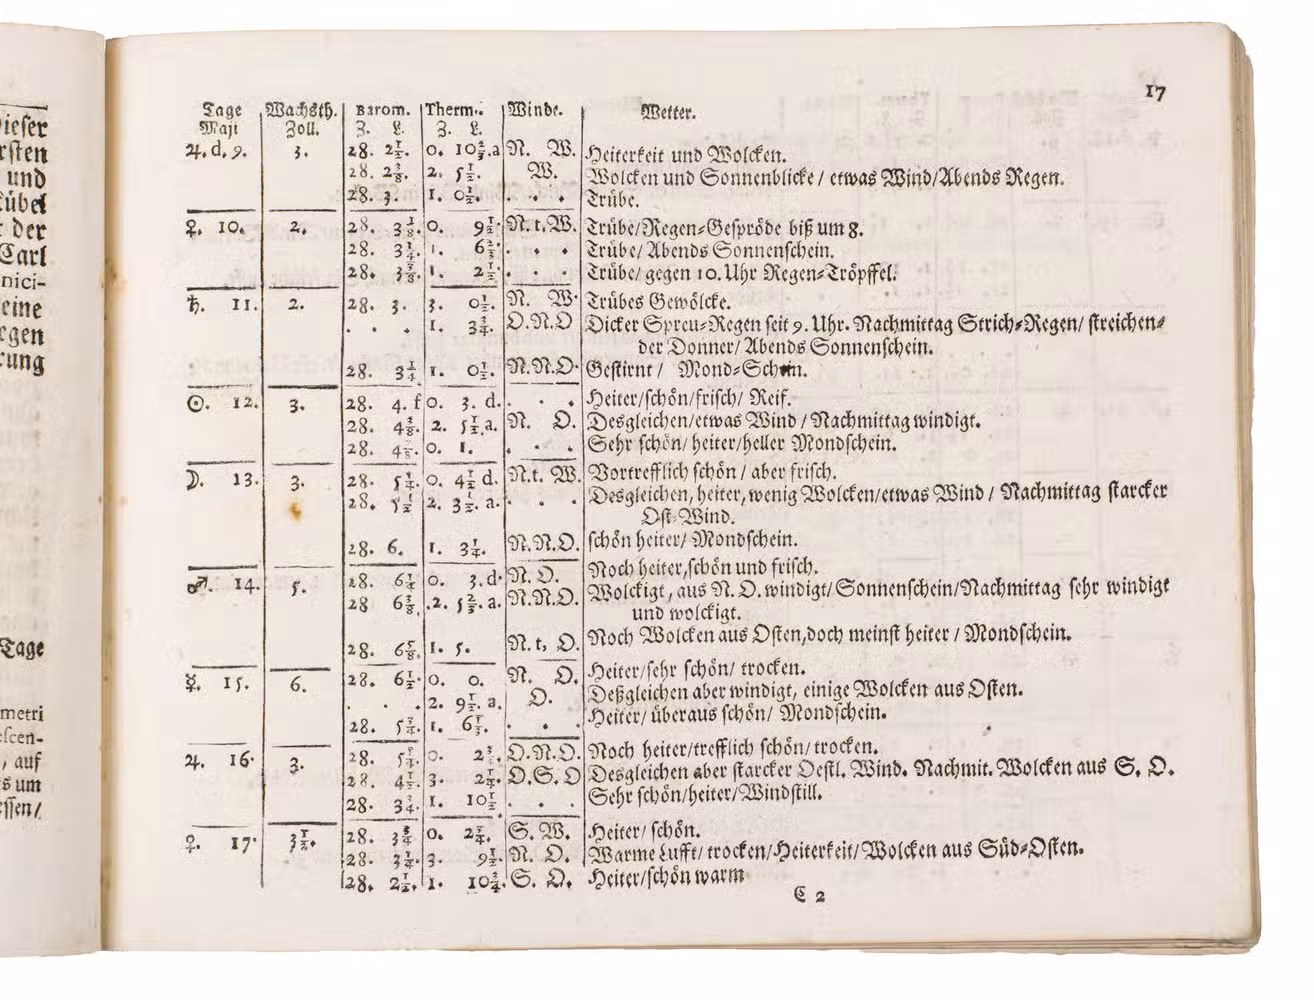 ieser
rsten
und
übel
der
Carl
nici-
eine
egen
rung
Tage
metri
escen-
, auf
s um
essen/
17
Tage Wachsth. Barom. Therm. Winde. Wetter.
Maji Zoll. Z. L. Z. L.
♃. d. 9. 3. 28. 2½. 0. 10⅔.a N. W. Heiterkeit und Wolcken.
28. 2⅜. 2. 5½. W. Wolcken und Sonnenblicke / etwas Wind/Abends Regen.
28. 3. 1. 0½. . . . Trübe.
♀. 10. 2. 28. 3⅛. 0. 9½. N.t.W. Trübe/Regen-Gespröde biß um 8.
28. 3¼. 1. 6⅔. . . . Trübe/ Abends Sonnenschein.
28. 3⅜. 1. 2½. . . . Trübe/ gegen 10. Uhr Regen-Tröpffel.
♄. 11. 2. 28. 3. 3. 0½. N. W. Trübes Gewölcke.
. . . 1. 3¾. O.N.O Dicker Spreu-Regen seit 9. Uhr. Nachmittag Strich-Regen/ streichen-
der Donner/ Abends Sonnenschein.
28. 3¼ 1. 0½. N.N.O. Gestirnt / Mond-Schein.
☉. 12. 3. 28. 4. f 0. 3. d. . . . Heiter/schön/frisch/ Reif.
28. 4⅜. 2. 5½.a. N. O. Desgleichen/etwas Wind / Nachmittag windigt.
28. 4⅜. 0. 1. . . . Sehr schön/ heiter/heller Mondschein.
☽. 13. 3. 28. 5¼. 0. 4½ d. N.t. W. Vortrefflich schön / aber frisch.
28. 5½ 2. 3½. a. . . . Desgleichen, heiter, wenig Wolcken/etwas Wind / Nachmittag starcker
Ost-Wind.
28. 6. 1. 3¼. N.N.O. schön heiter/ Mondschein.
Noch heiter,schön und frisch.
♂. 14. 5. 28. 6¼ 0. 3.d. N. O. Wolckigt, aus N. O. windigt/Sonnenschein/Nachmittag sehr windigt
28 6⅜. 2. 5⅔. a. N.N.O. und wolckigt.
28. 6⅝. 1. 5. N.t. O. Noch Wolcken aus Osten,doch meinst heiter / Mondschein.
☿. 15. 6. 28. 6½. 0. 0. N. O. Heiter/sehr schön/ trocken.
. . . 2. 9½. a. O. Deßgleichen aber windigt, einige Wolcken aus Osten.
28. 5¾. 1. 6½. . . Heiter/ überaus schön/ Mondschein.
♃. 16. 3. 28. 5¼. 0. 2¾. O.N.O. Noch heiter/trefflich schön/ trocken.
28. 4½. 3. 2¼. O.S.O Desgleichen aber starcker Oestl. Wind. Nachmit. Wolcken aus S. O.
28. 3¾. 1. 10½. . . . Sehr schön/heiter/Windstill.
♀. 17. 3½. 28. 3¾ 0. 2¼. S. W. Heiter/ schön.
28. 3¼. 3. 9½. N. O. Warme Lufft/ trocken/Heiterkeit/Wolcken aus Süd-Osten.
28. 2½. 1. 10¾. S. O. Heiter/schön warm
C 2